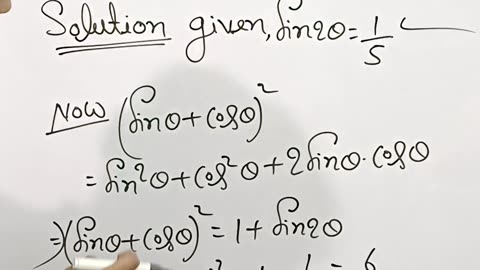 Solution given, Sin2θ = 1/5
Now (Sinθ + Cosθ)²
= Sin²θ + Cos²θ + 2Sinθ·Cosθ
⇒ (Sinθ + Cosθ)² = 1 + Sin2θ